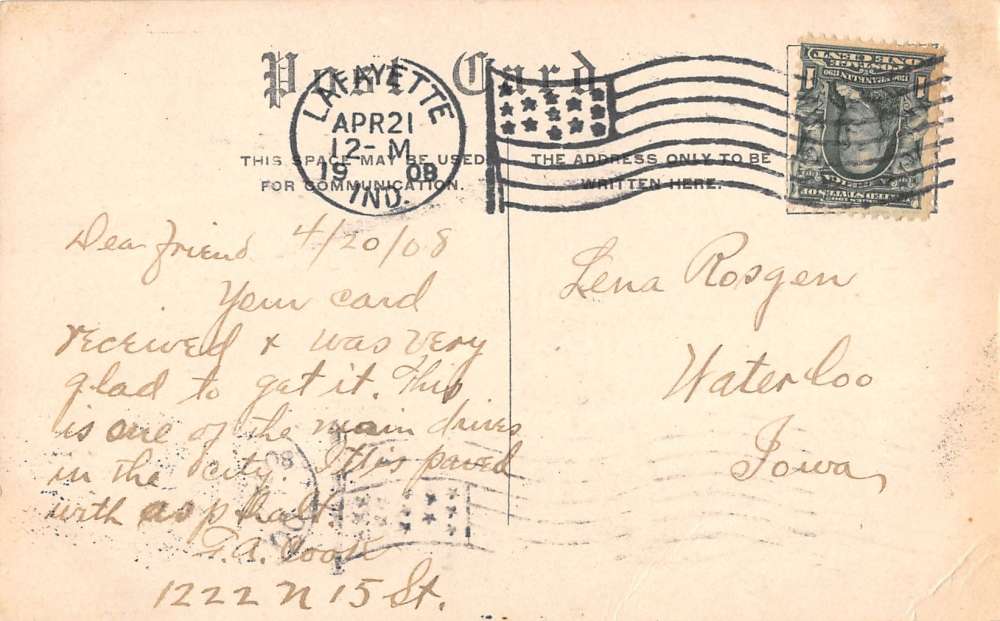 Post Card
LAFAYETTE
APR 21
12-M
1908
IND.
THIS SPACE MAY BE USED
FOR COMMUNICATION.
THE ADDRESS ONLY TO BE
WRITTEN HERE.
Dear friend 4/20/08
Your card
received & was very
glad to get it. This
is one of the main drives
in the city. It is paved
with asphalt.
Cook
1222 N 15 St.
Lena Rosgen
Waterloo
Iowa
ONE CENT
POSTAGE
UNITED STATES OF
08